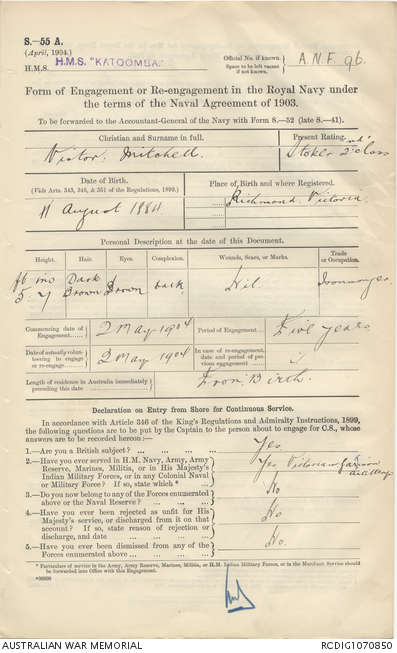 S.—55 A.
(April, 1904.)
H.M.S. H.M.S. "KATOOMBA."
Official No. if known: A.N.F. 96.
Space to be left vacant if not known.
Form of Engagement or Re-engagement in the Royal Navy under
the terms of the Naval Agreement of 1903.
To be forwarded to the Accountant-General of the Navy with Form S.—52 (late S.—41).
Christian and Surname in full.
Present Rating.
Victor Mitchell.
Stoker 2nd Class
Date of Birth.
(Vide Arts. 343, 346, & 351 of the Regulations, 1899.)
Place of Birth and where Registered.
11 August 1884
Richmond Victoria
Personal Description at the date of this Document.
Height. Hair. Eyes. Complexion. Wounds, Scars, or Marks. Trade or Occupation.
ft ins Dark
5. 7 Brown Brown Dark Nil. Ironmonger
Commencing date of Engagement 2 May 1904 Period of Engagement Five years
Date of actually volunteering to engage or re-engage 2 May 1904 In case of re-engagement, date and period of previous engagement
Length of residence in Australia immediately preceding this date From Birth.
Declaration on Entry from Shore for Continuous Service.
In accordance with Article 346 of the King's Regulations and Admiralty Instructions, 1899,
the following questions are to be put by the Captain to the person about to engage for C.S., whose
answers are to be recorded hereon:—
1.—Are you a British subject? Yes
2.—Have you ever served in H.M. Navy, Army, Army
Reserve, Marines, Militia, or in His Majesty's
Indian Military Forces, or in any Colonial Naval
or Military Force? If so, state which * Yes Victorian Garrison Artillery
3.—Do you now belong to any of the Forces enumerated
above or the Naval Reserve? No
4.—Have you ever been rejected as unfit for His
Majesty's service, or discharged from it on that
account? If so, state reason of rejection or
discharge, and date No
5.—Have you ever been dismissed from any of the
Forces enumerated above No.
* Particulars of service in the Army, Army Reserve, Marines, Militia, or H.M. Indian Military Forces, or in the Merchant Service should
be forwarded into Office with this Engagement.
AUSTRALIAN WAR MEMORIAL
RCDIG1070850